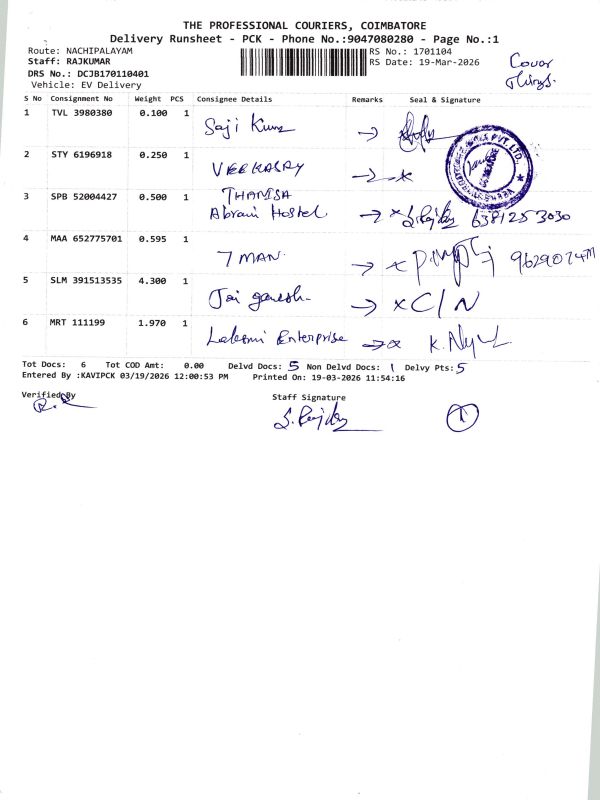 THE PROFESSIONAL COURIERS, COIMBATORE
Delivery Runsheet - PCK - Phone No.:9047080280 - Page No.:1
Route: NACHIPALAYAM
RS No.: 1701104
Staff: RAJKUMAR
RS Date: 19-Mar-2026
DRS No.: DCJB170110401
Vehicle: EV Delivery
Cover
Things.
S No Consignment No Weight PCS Consignee Details Remarks Seal & Signature
1 TVL 3980380 0.100 1
Saji
2 STY 6196918 0.250 1
PVT. LTD.
3 SPB 52004427 0.500 1
Hostel → x 6381253030
4 MAA 652775701 0.595 1
7 MAN → x
5 SLM 391513535 4.300 1
Jai ganesh → x C/N
6 MRT 111199 1.970 1
Laksmi Enterprise → x
Tot Docs: 6 Tot COD Amt: 0.00 Delvd Docs: 5 Non Delvd Docs: 1 Delvy Pts: 5
Entered By :KAVIPCK 03/19/2026 12:00:53 PM Printed On: 19-03-2026 11:54:16
Verified By
Staff Signature
1